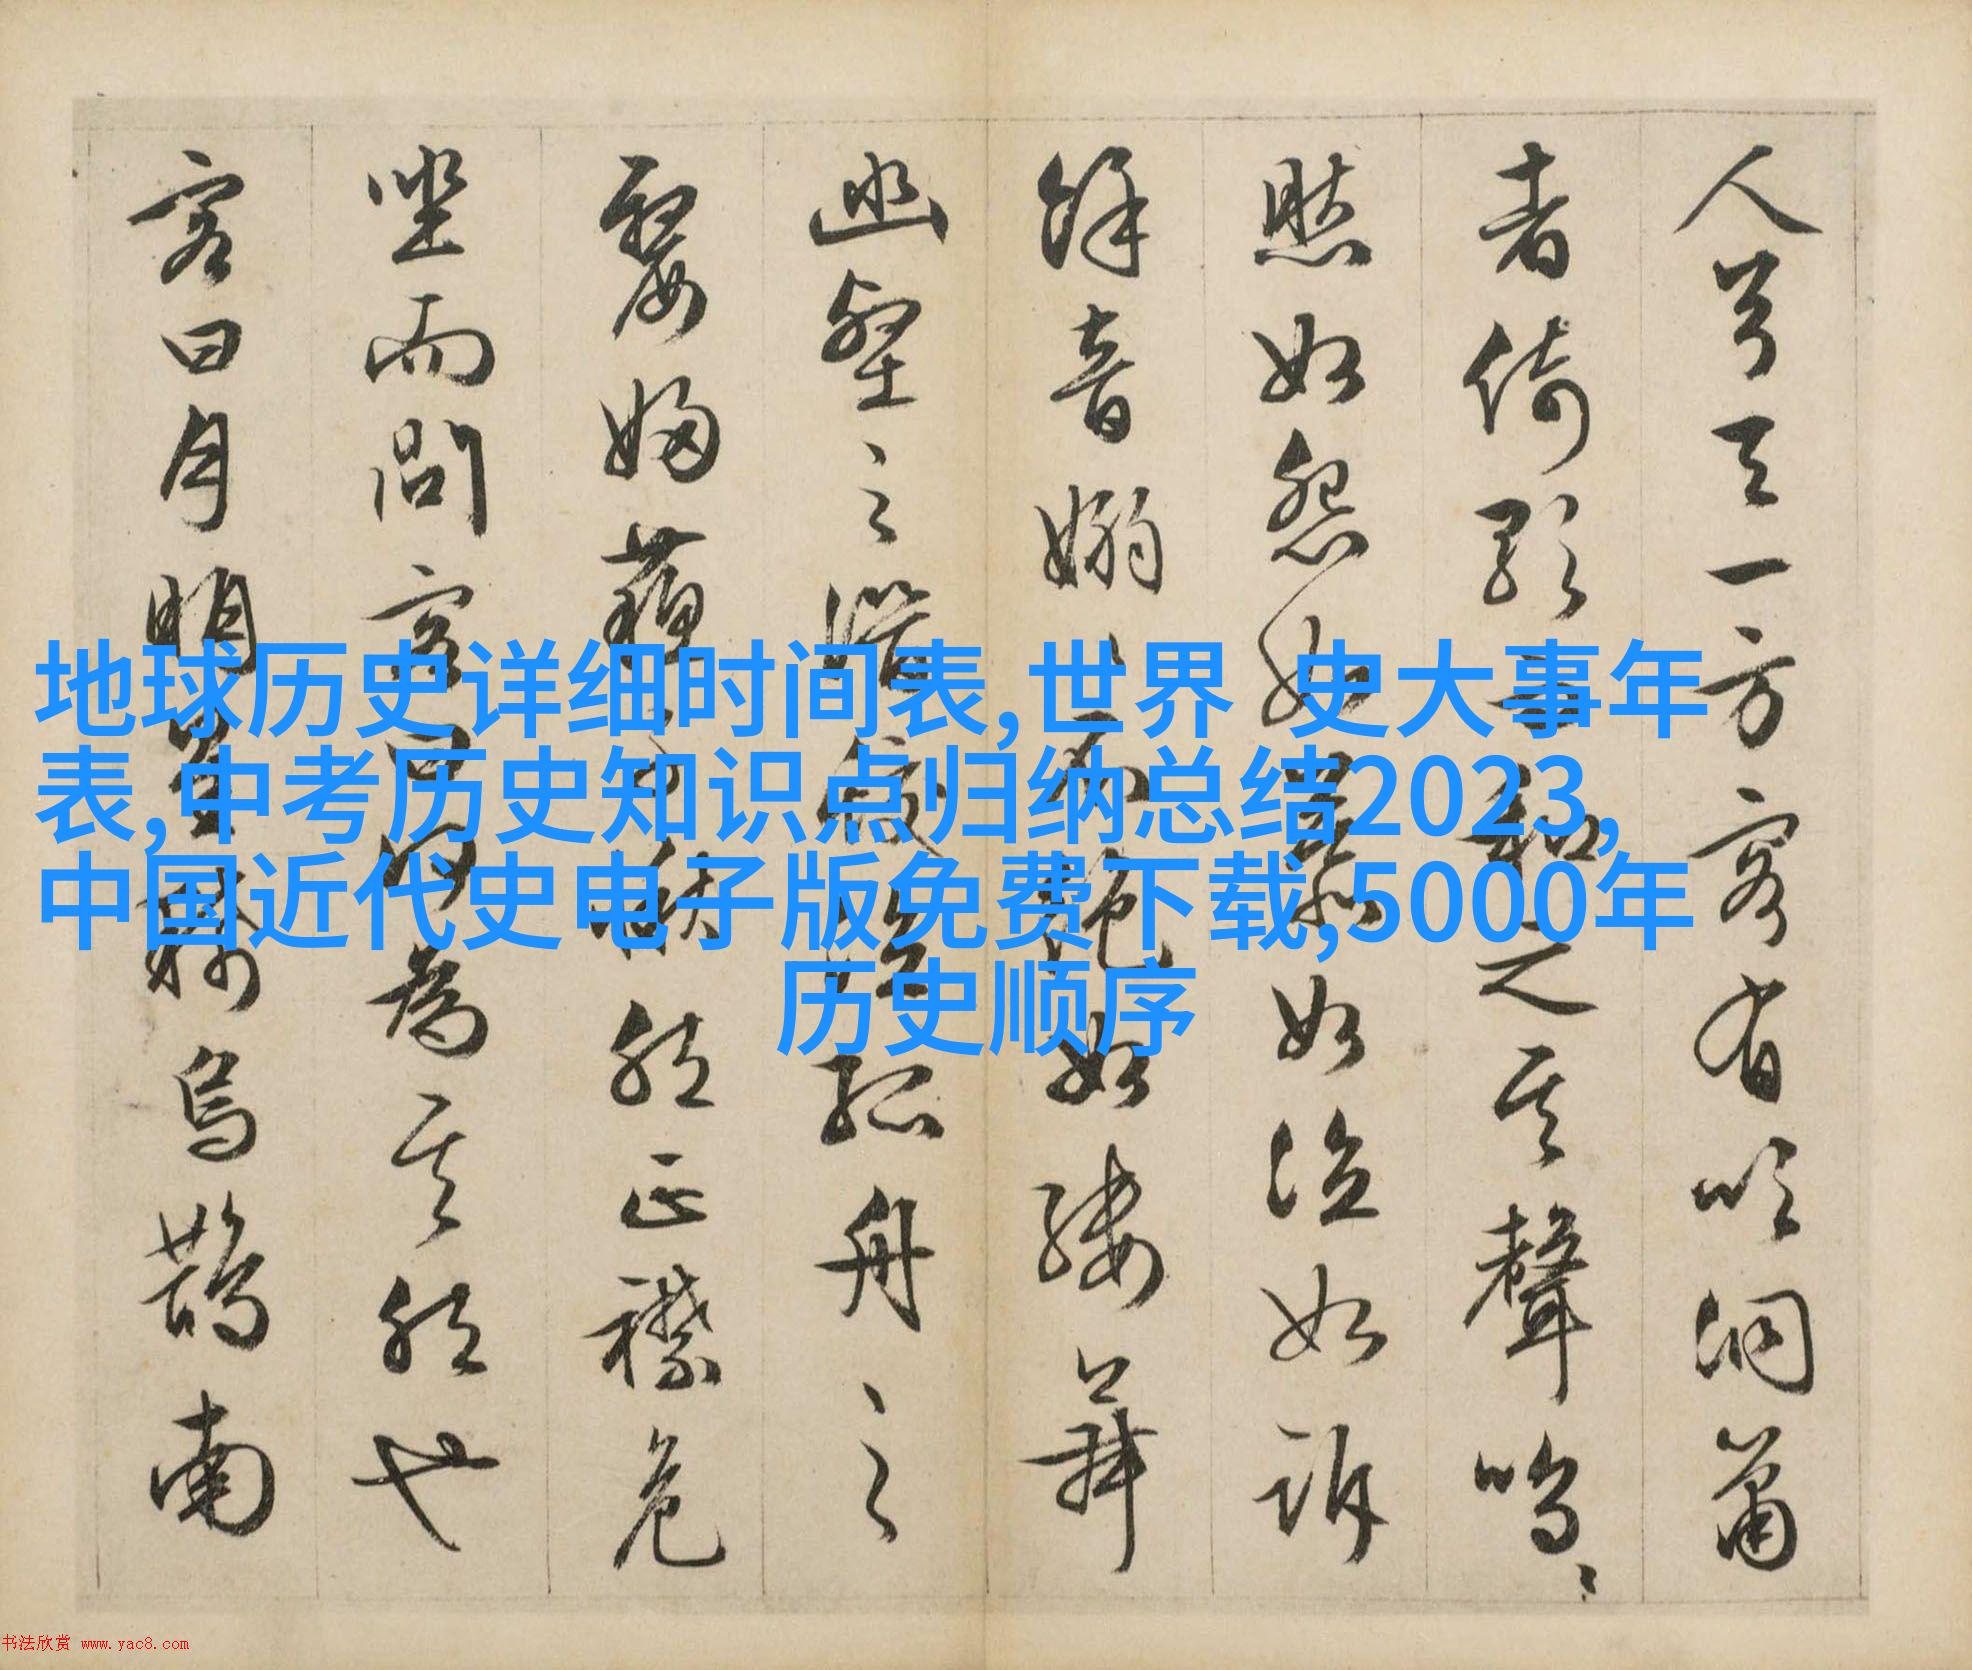 人兮天一方客有吹洞萧
者倚歌而和之其聲嗚〻
然如怨如慕如泣如訴
餘音嫋〻不絕如縷舞
幽壑之潛蛟泣孤舟之
嫠婦蘇子愀然正襟危
坐而問客曰何為其然也
客曰月明星稀烏鵲南
地球历史详细时间表,世界 史大事年
表,中考历史知识点归纳总结2023,
中国近代史电子版免费下载,5000年
历史顺序
书法欣赏 www.yac8.com